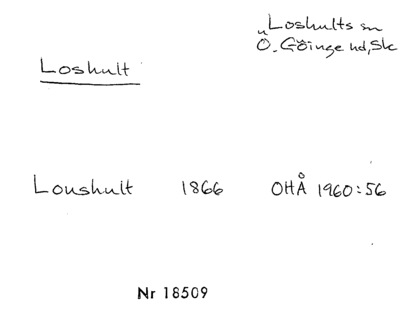 Loshults sn
Ö. Göinge hd, Sk
Loshult
Loushult 1866 OHÅ 1960:56
Nr 18509